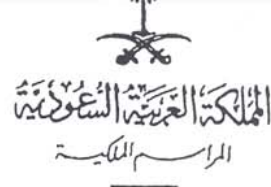 المملكة العربية السعودية
المراسم الملكية